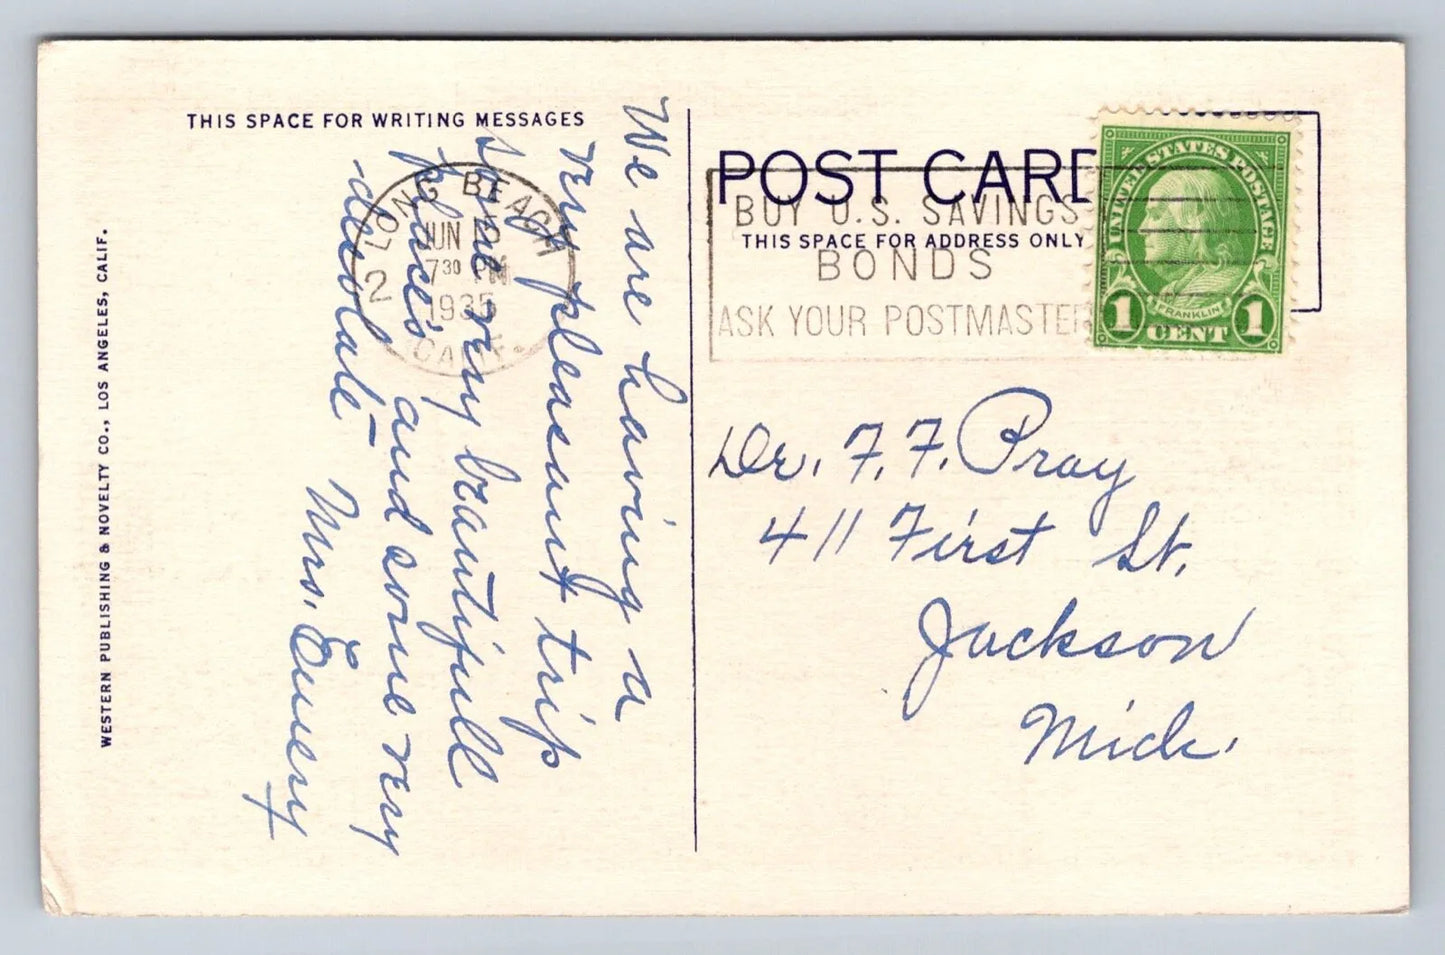 THIS SPACE FOR WRITING MESSAGES
We are having a
very pleasant trip
some very beautifull
places and some very
desolate -
Mrs. Emery
LONG BEACH
JUN 5
7 30 PM
1935
CALIF.
2
WESTERN PUBLISHING & NOVELTY CO., LOS ANGELES, CALIF.
POST CARD
BUY U.S. SAVINGS
THIS SPACE FOR ADDRESS ONLY
BONDS
ASK YOUR POSTMASTER
UNITED STATES POSTAGE
FRANKLIN
1 CENT 1
Dr. F. F. Pray
411 First St.
Jackson
Mich.